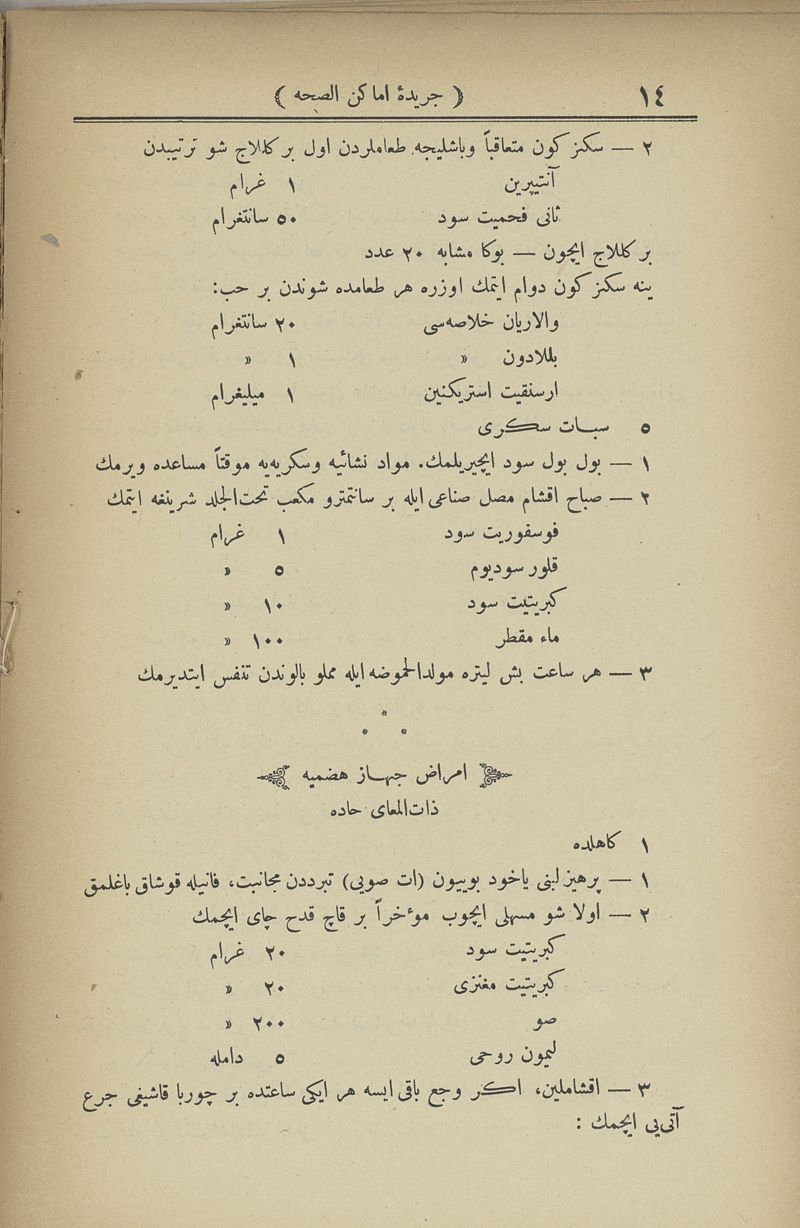 ١٤ ( جريدهٔ اماكن الصحه )
٢ — سكز كون متعاقباً وباشليجه طعاملردن اول بر كللاج شو ترتيبدن
آنتيپرين ١ غرام
ثانى فحميت سود ٥٠ سانتغرام
بر كللاج ايچون — بوكا مشابه ٢٠ عدد
ينه سكز كون دوام ايتمك اوزره هر طعامده شوندن بر حب:
والاريان خلاصه‌سى ٢٠ سانتغرام
بللادون » ١ »
ارسنقيت استريكنين ١ ميليغرام
٥ سبات سكرى
١ — بول بول سود ايچيريلمك. مواد نشائيه وسكريه‌يه موقتاً مساعده ويرمك
٢ — صباح اقشام مصل صناعى ايله بر سانتمترو مكعب تحت‌الجلد شرينغه ايتمك
فوسفوريت سود ١ غرام
قلور سوديوم ٥ »
كبريتيت سود ١٠ »
ماء مقطر ١٠٠ »
٣ — هر ساعت بش ليتره مولدالحموضه ايله مملو بالوندن تنفس ايتديرمك
* * *
امراض جهاز هضميه
ذات‌المعاى حاده
١ كاهلده
١ — پرهيز لبنى ياخود بوييون (ات صويى) تبرددن مجانبت، فانيله قوشاق باغلمق
٢ — اولا شو مسهلى ايچوب مؤخراً بر قاچ قدح چاى ايچمك
كبريتيت سود ٢٠ غرام
كبريتيت مغنزى ٢٠ »
صو ٢٠٠ »
ليمون روحى ٥ دامله
٣ — اقشاملين، اكر وجع باقى ايسه هر ايكى ساعتده بر چوربا قاشيغى جرع
آتى‌يى ايچمك :